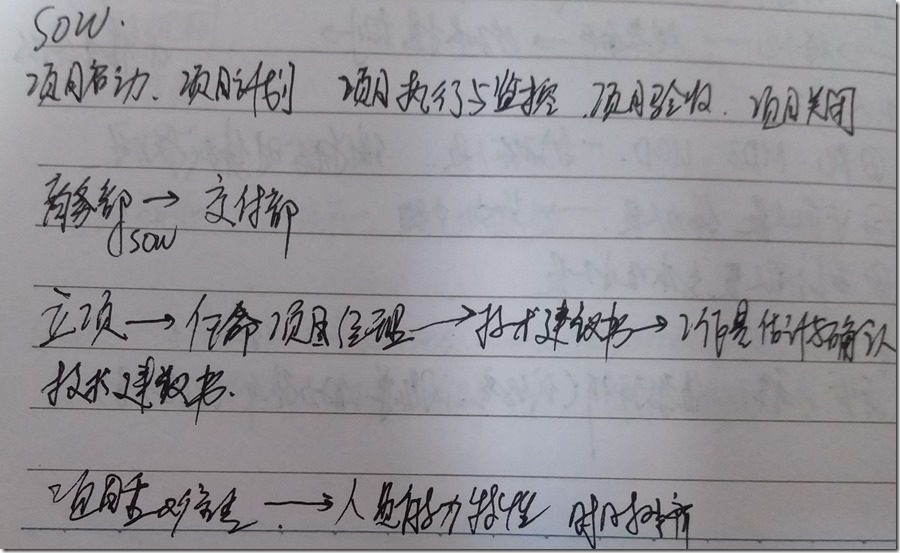 SOW.
项目启动、项目计划 项目执行与监控、项目验收、项目关闭
商务部 → 交付部
SOW
立项 → 任命项目经理 → 技术建议书 → 工作量估计与确认
技术建议书.
项目 → 人员能力特性